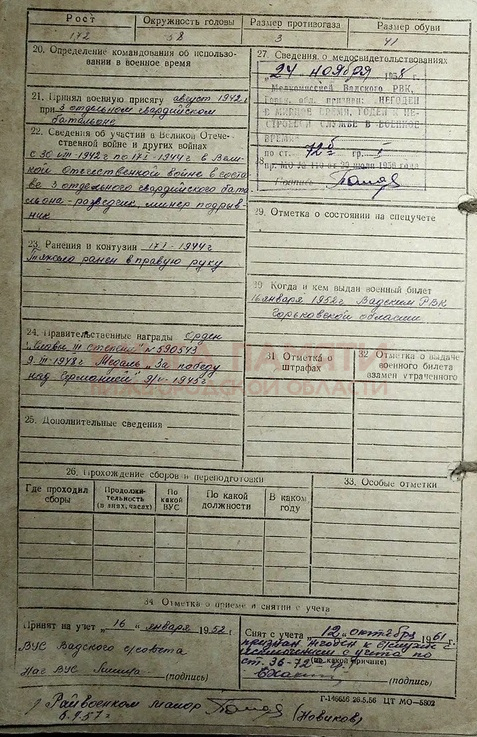 Рост Окружность головы Размер противогаза Размер обуви
172 58 3 41
20. Определение командования об использо-
вании в военное время
21. Принял военную присягу август 1942 г
при 3 отдельном гвардейском
батальоне
22. Сведения об участии в Великой Отече-
ственной войне и других войнах
с 30 1942 г по 17 I-1944 г в Вели-
кой Отечественной войне в соста-
ве 3 отдельного гвардейского бата-
льона-разведчик, минер подрыв-
ник
23. Ранения и контузии 17 I-1944 г
Тяжело ранен в правую руку
24. Правительственные награды Орден
"Славы III степени" № 590543
9 III-1948 г Медаль "За победу
над Германией" 1945 г
25. Дополнительные сведения
27. Сведения о медосвидетельствованиях
"24 ноября 1958 г.
Медкомиссией Вадского РВК,
признан: НЕГОДЕН
В МИРНОЕ ВРЕМЯ, ГОДЕН К НЕ-
СТРОЕВОЙ СЛУЖБЕ В ВОЕННОЕ
ВРЕМЯ
по ст. 72 гр. I
пр. МО № 110 от 1958 года
29. Отметка о состоянии на спецучете
30 Когда и кем выдан военный билет
16 января 1952 г Вадским РВК
Горьковской области
31 Отметка о
штрафах
32 Отметка о выдаче
военного билета
взамен утраченного
ПАМЯТИ
НИЖЕГОРОДСКОЙ ОБЛАСТИ
26. Прохождение сборов и переподготовки
Где проходил
сборы
Продолжи-
тельность
(в днях, часах)
По
какой
ВУС
По какой
должности
В каком
году
33. Особые отметки
34 Отметка о приеме и снятии с учета
Принят на учет "16" января 1952 г
ВУС Вадского с/совета
Нач ВУС
(подпись)
Снят с учета "12" октября 1961 г
признан негоден к в/службе с
исключением с учета по
ст. 36-72
(по какой причине)
(подпись)
Г-146656 26.5.56 ЦТ МО—5802
Райвоенком майор (Новиков)
8.9.57 г